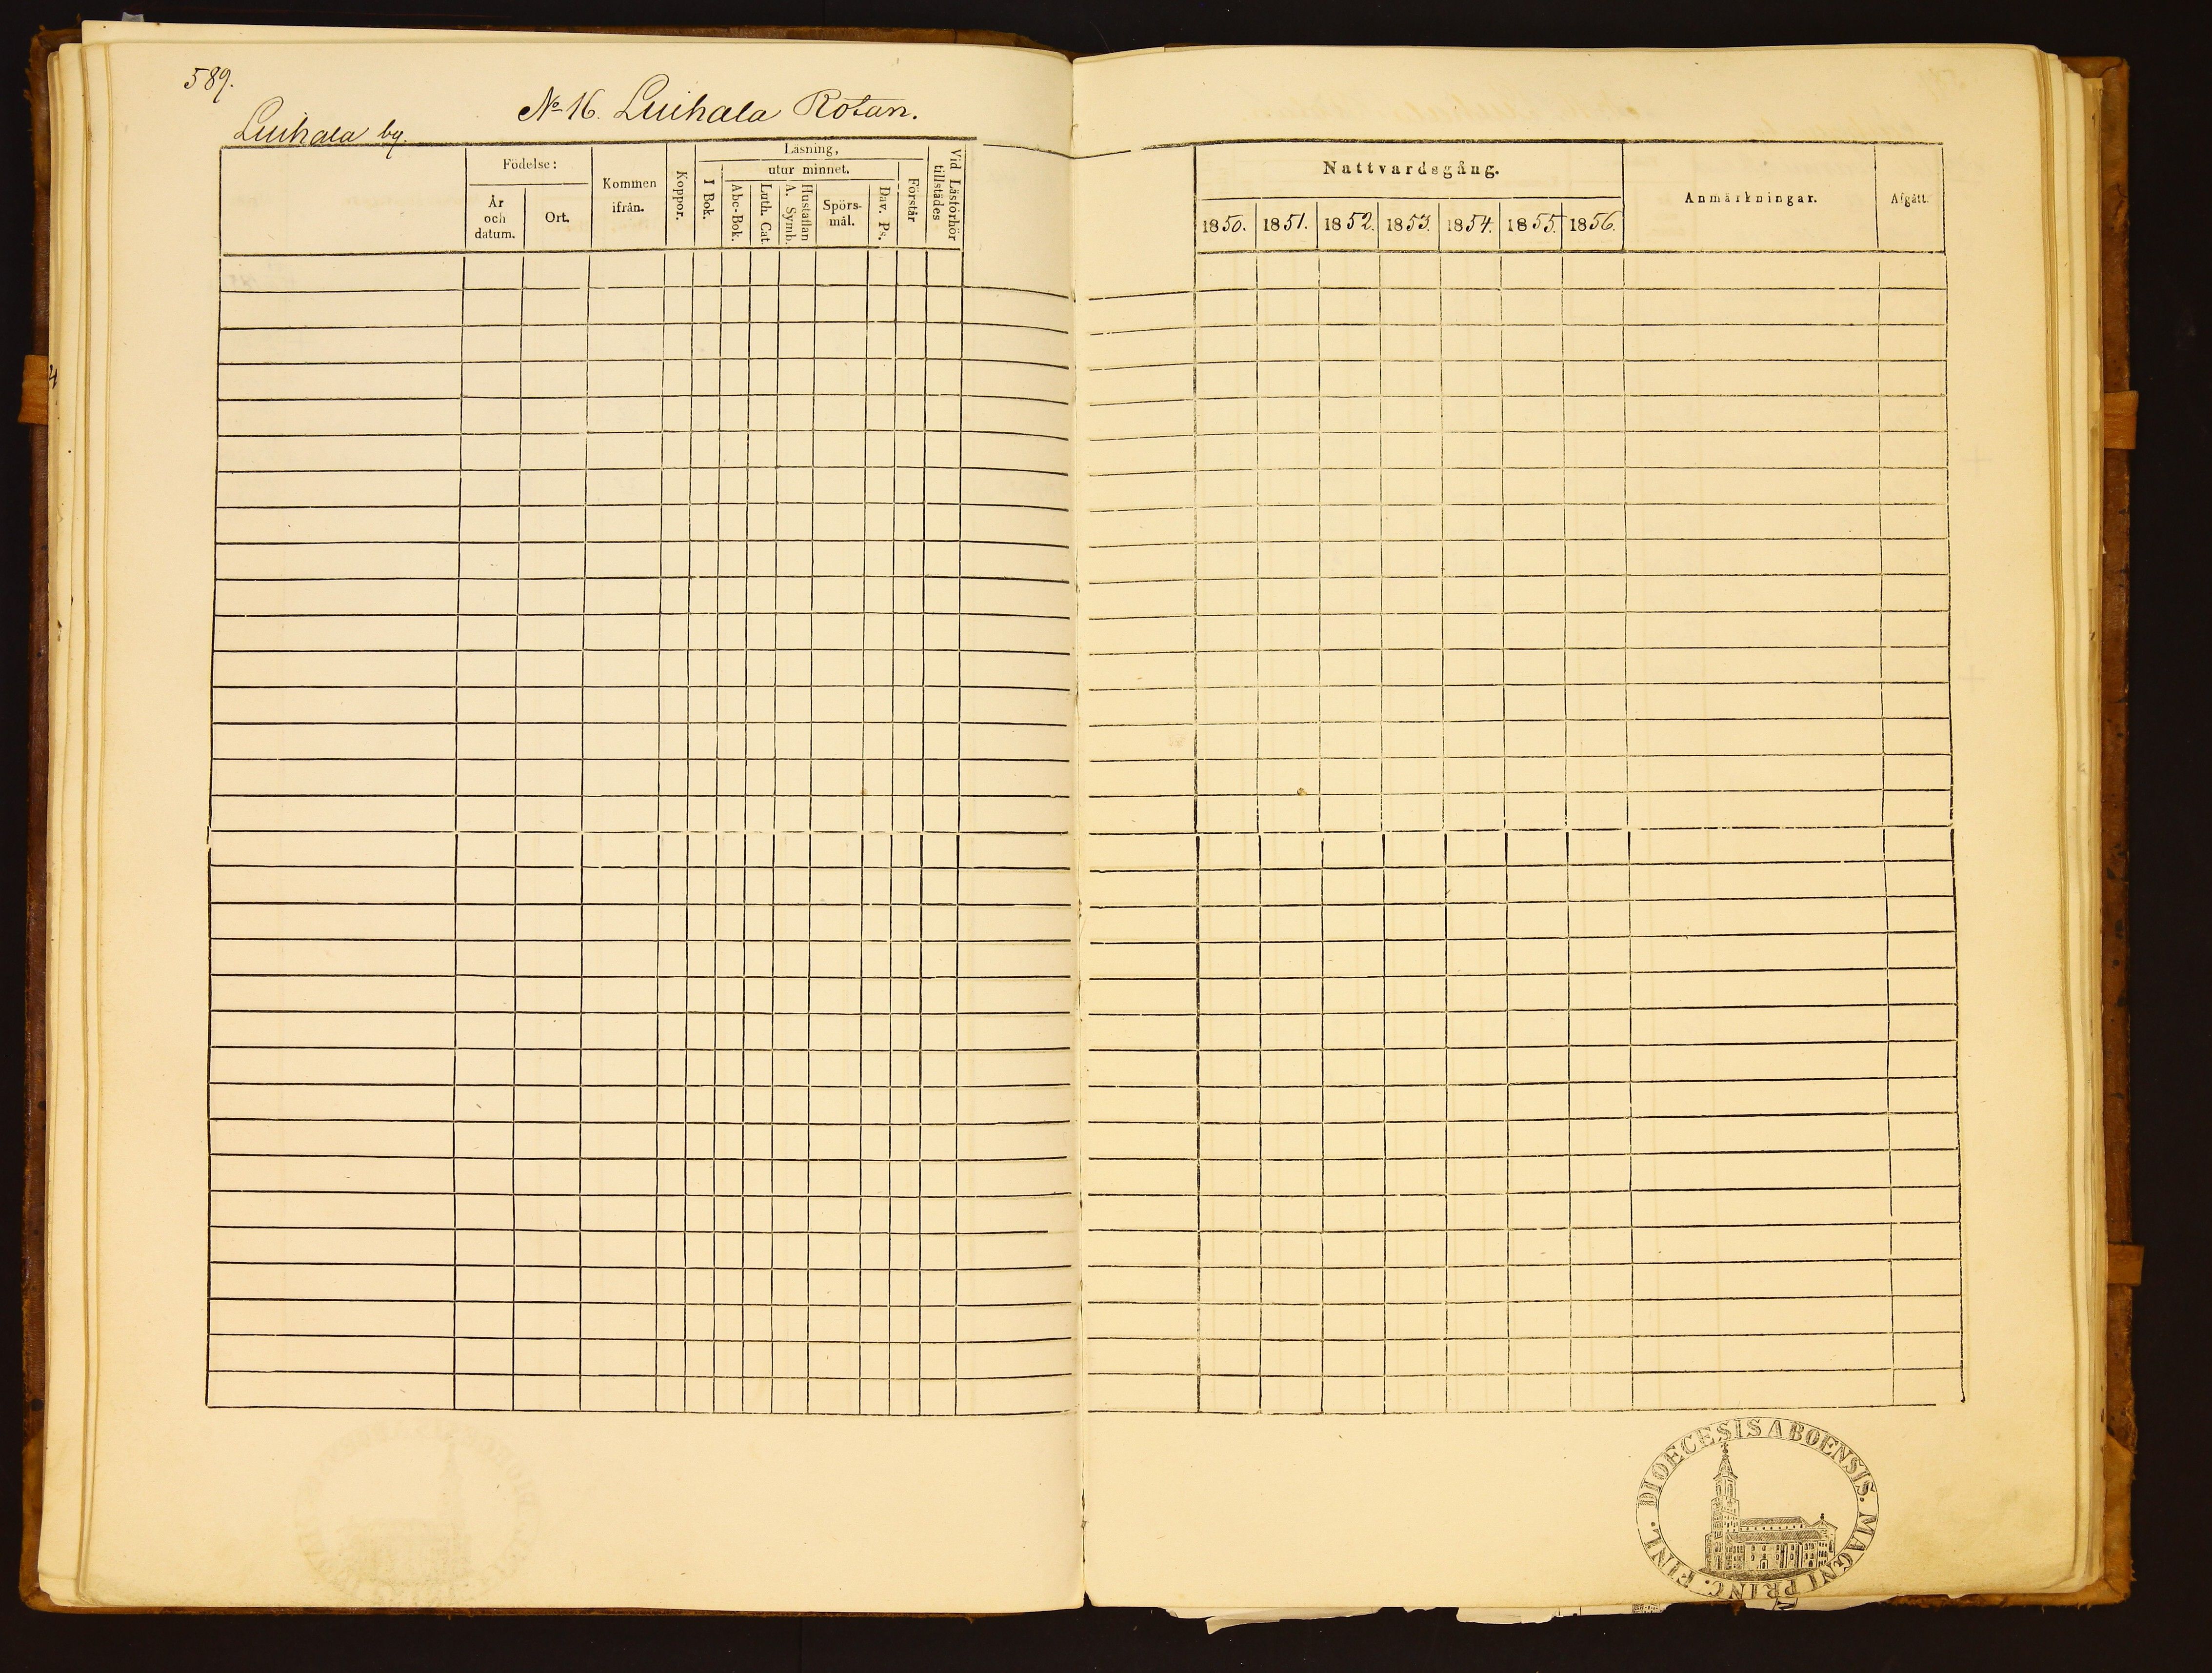 589.
No 16. Luihala Rotan.
Luihala by.
Födelse:
År
och
datum.
Ort.
Kommen
ifrån.
Koppor.
Läsning,
I Bok.
utur minnet.
Abc-Bok.
Luth. Cat.
A. Symb.
Hustaflan
Spörs-
mål.
Dav. Ps.
Förstår
Vid Läsförhör
tillstädes
Nattvardsgång.
1850. 1851. 1852. 1853. 1854. 1855. 1856.
Anmärkningar.
Afgått.
DIOECESIS ABOENSIS. MAGNI PRINC. FINL.